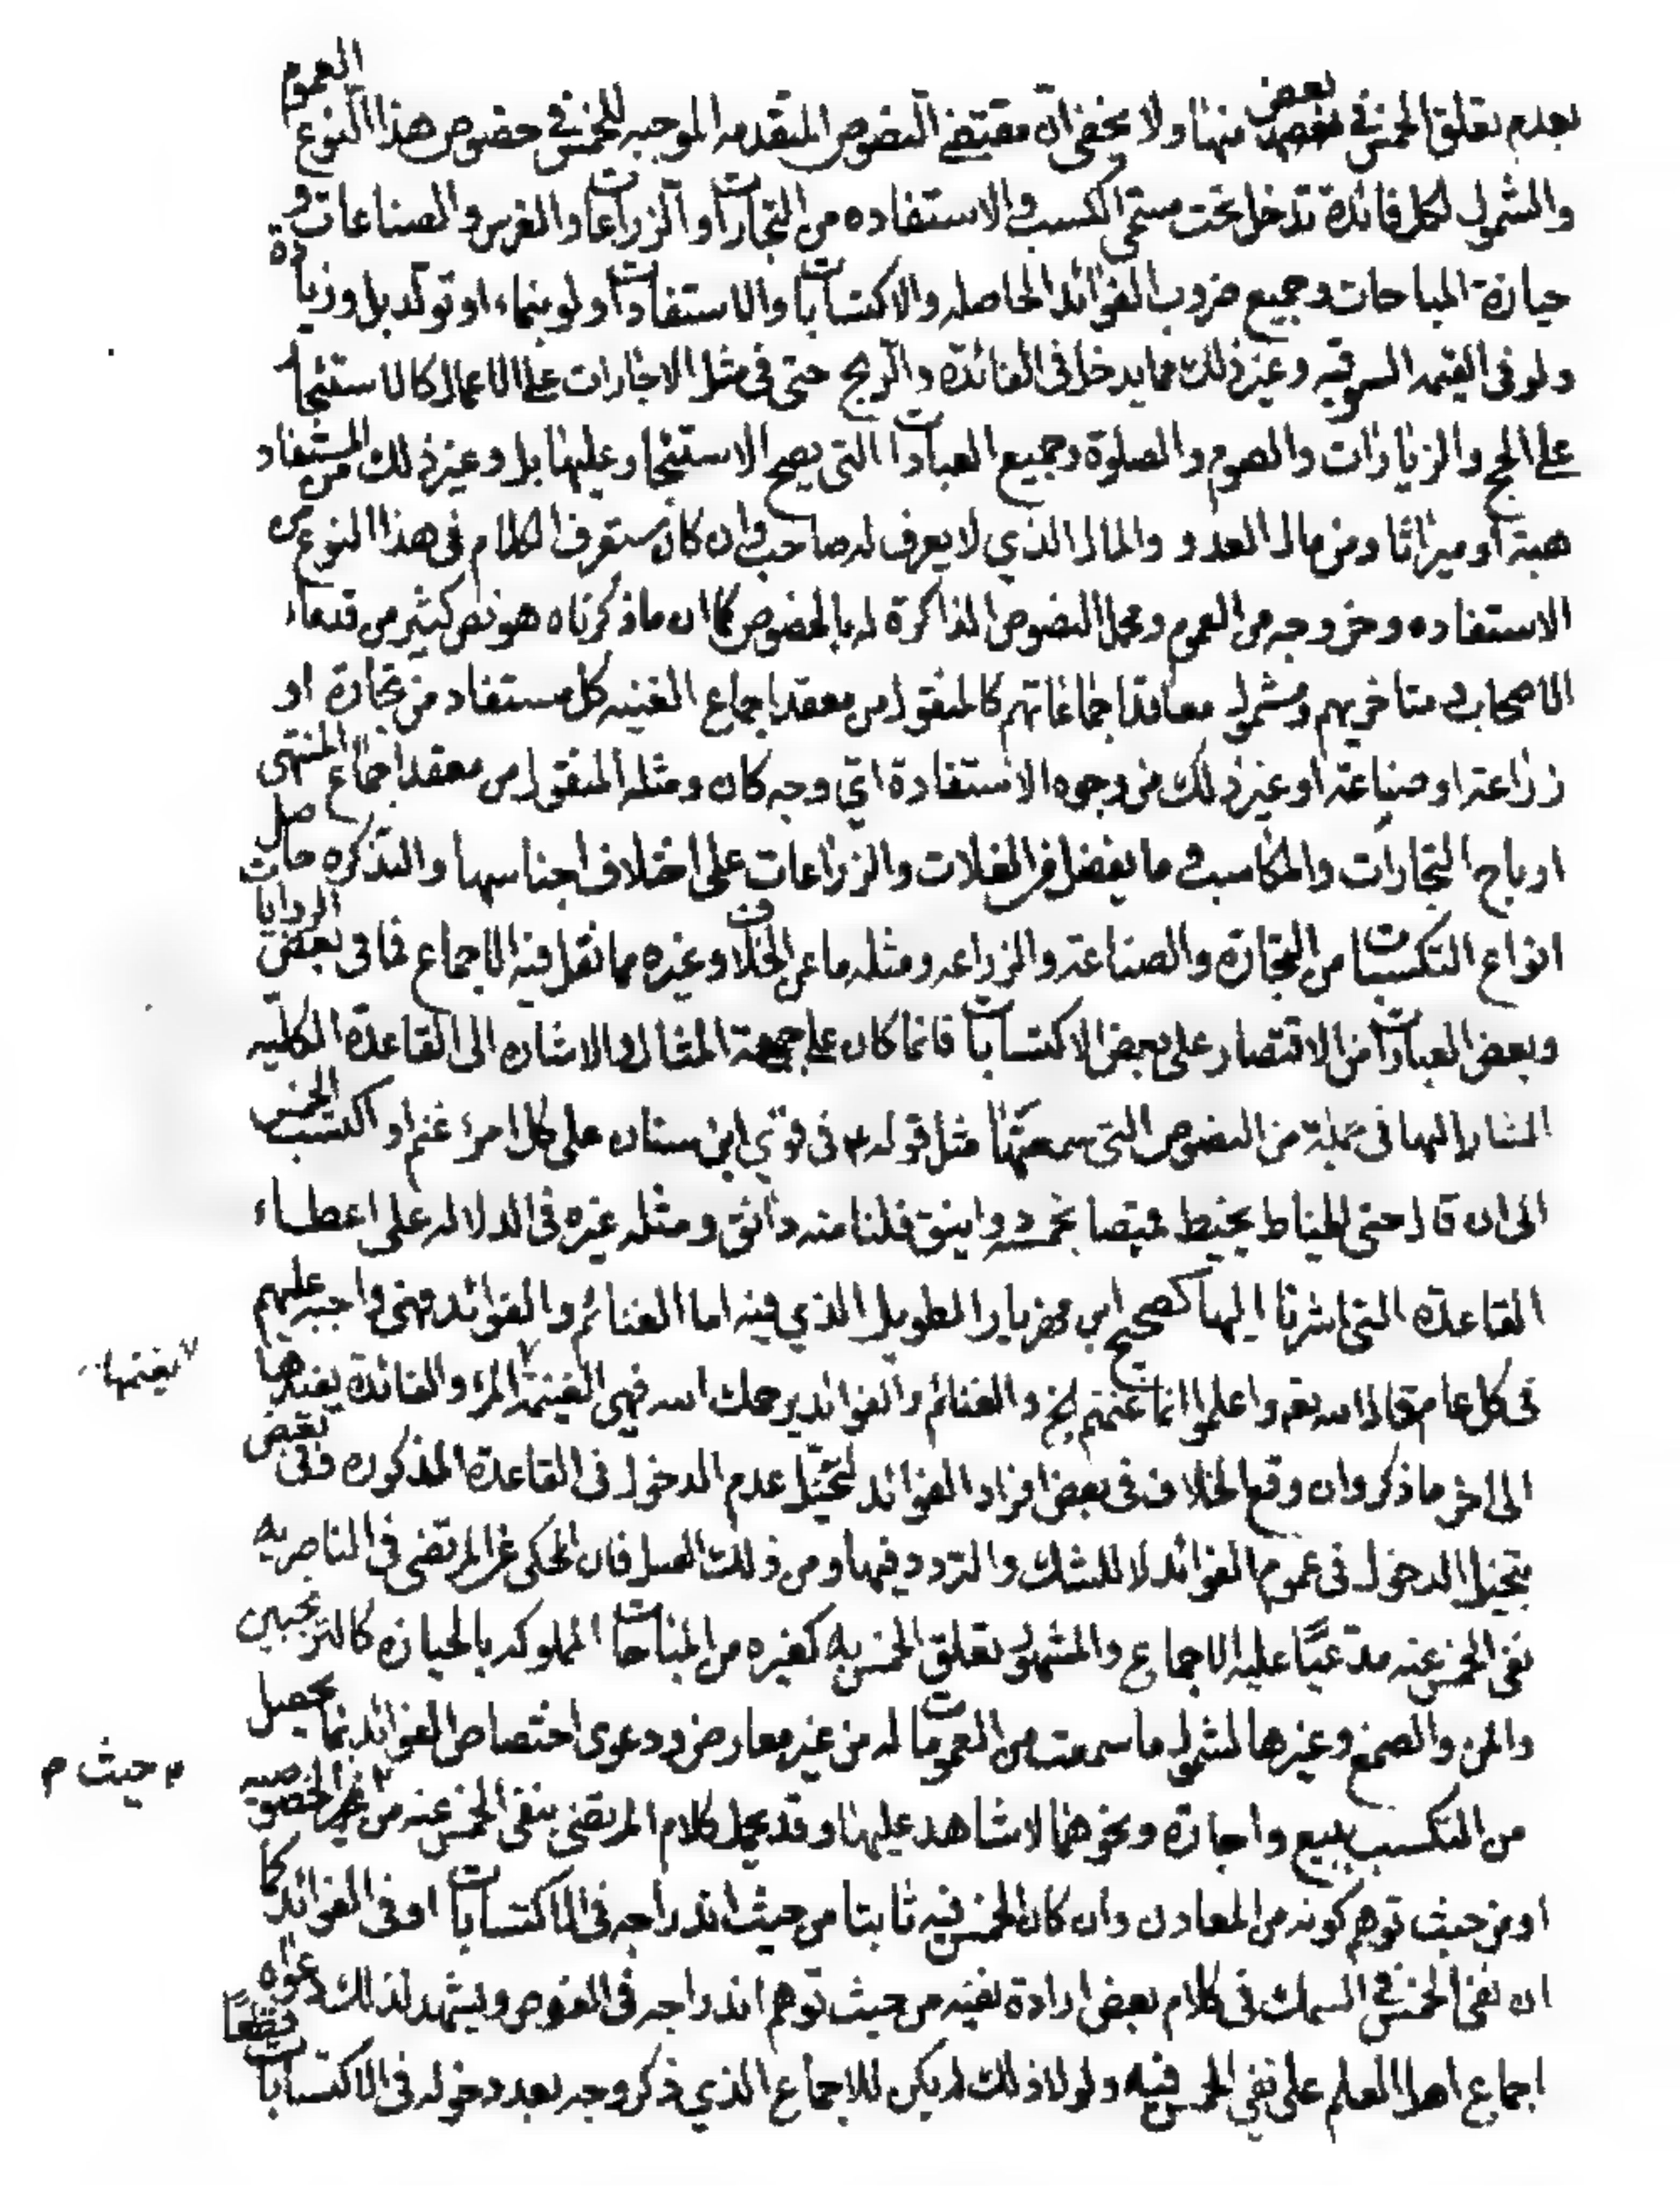 بعدم تعلق الخمس في بعض منها ولا يخفى ان مقتضى النصوص المتقدمه الموجبه للخمس في خصوص هذا النوع العموم
والشمول لكل فائدة تدخل تحت مسمى الكسب والاستفاده من التجارات والزراعات والغرس والصناعات و
حيازة المباحات وجميع ضروب الفوائد الحاصله والاكتسابات والاستفادات ولو بنماء او تولد بل وزيادة
ولو في القيمه السوقيه وغير ذلك مما يدخل في الفائدة والربح حتى في مثل الاجارات على الاعمال كالاستئجار
على الحج والزيارات والصوم والصلوة وجميع العبادات التي يصح الاستئجار عليها بل وغير ذلك من المستفاد
هبة او ميراثا ومن مال العدو والمال الذي لا يعرف له صاحب وان كان ستعرف الكلام في هذا النوع من
الاستفاده وخروجه من العموم ومحل النصوص الذاكرة له بالخصوص كما ان ما ذكرناه هو نص كثير من قدماء
الاصحاب ومتاخريهم ومشمول معاقد اجماعاتهم كالمنقول من معقد اجماع الغنيه كل مستفاد من تجارة او
زراعة او صناعة او غير ذلك من وجوه الاستفادة اي وجه كان ومثله المنقول من معقد اجماع المنتهى
ارباح التجارات والمكاسب وما يفضل من الغلات والزراعات على اختلاف اجناسها والتذكره حاصل
انواع التكسبات من التجارة والصناعة والزراعه ومثله ما عن الخلاف وغيره مما نقل فيه الاجماع فما في بعض الروايات
وبعض العبارات من الاقتصار على بعض الاكتسابات فانما كان على جهة المثال والاشاره الى القاعدة الكليه
المشار اليها في جملة من النصوص التي سمعتها مثل قوله ع في قوي ابن سنان على كل امرء غنم او اكتسب الخمس
الى ان قال حتى الخياط يخيط قميصا بخمسة دوانيق فلنا منه دانق ومثله غيره في الدلاله على اعطاء
القاعدة التي اشرنا اليها كصحيح ابن مهزيار الطويل الذي فيه اما الغنائم والفوائد فهي واجبه عليهم
في كل عام قال الله تعم واعلموا انما غنمتم الخ والغنائم والفوائد يرحمك الله فهي الغنيمة المرء والفائدة يفيدها
يغنمها
الى اخر ما ذكر وان وقع الخلاف في بعض افراد الفوائد لتخيل عدم الدخول في القاعدة المذكوره وفي بعض
بتخيل الدخول في عموم الفوائد لا للشك والتردد فيها ومن ذلك العسل فان المحكى عن المرتضى في الناصريه
نفى الخمس عنه مدعيًا عليه الاجماع والمشهور تعلق الخمس به كغيره من المباحات المملوكه بالحيازه كالترنجبين
والمن والصمغ وغيرها لشمول ما سمعت من العمومات له من غير معارض ودعوى اختصاص الفوائد بما يحصل
من التكسب ببيع واجارة ونحوهما لا شاهد عليها وقد يحمل كلام المرتضى بنفى الخمس عنه من الخصوصيه
م حيث م
او من حيث توهم كونه من المعادن وان كان الخمس فيه ثابتا من حيث اندراجه في الاكتسابات او في الفوائد كما
ان نفى الخمس في السمك في كلام بعض ارادة نفيه من حيث توهم اندراجه في الغوص ويشهد لذلك دعواه
اجماع اهل العلم على نفي الخمس فيه ولولا ذلك لم يكن للاجماع الذي ذكر وجه بعد دخوله في الاكتسابات قطعًا